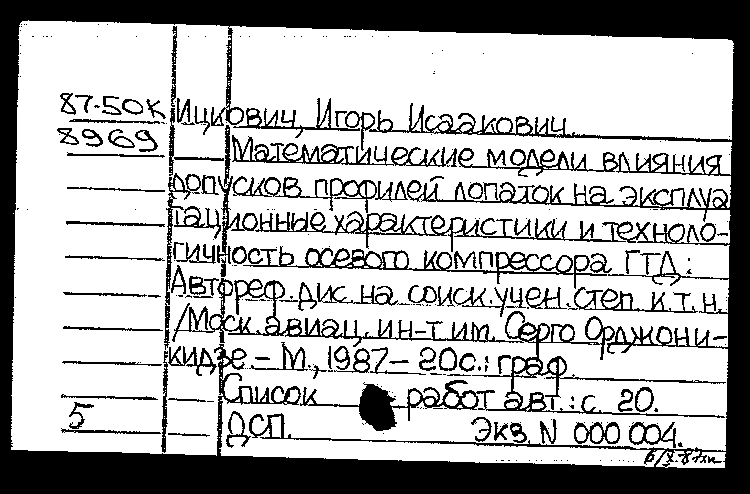 87-50К Ицкович, Игорь Исаакович.
8969 Математические модели влияния
допусков профилей лопаток на эксплуа
тационные характеристики и техноло-
гичность осевого компрессора ГТД:
Автореф. дис. на соиск. учен. степ. к.т.н.
/Моск. авиац. ин-т им. Серго Орджони-
кидзе. - М., 1987 - 20с.: граф.
Список работ авт.: с. 20.
5 ДСП. Экз. N 000 004.